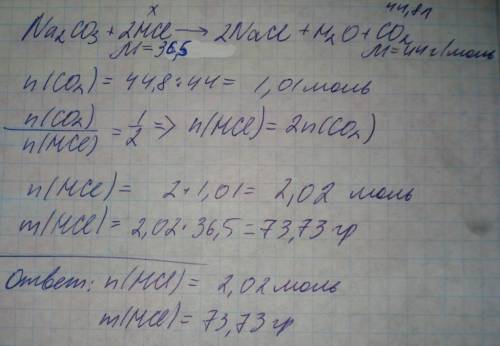 x 44,8л
Na₂CO₃ + 2HCl → 2NaCl + H₂O + CO₂
M = 36,5 M = 44 г/моль
n(CO₂) = 44,8 : 44 = 1,01 моль
n(CO₂)/n(HCl) = 1/2 => n(HCl) = 2n(CO₂)
n(HCl) = 2 * 1,01 = 2,02 моль
m(HCl) = 2,02 * 36,5 = 73,73 гр
Ответ: n(HCl) = 2,02 моль
m(HCl) = 73,73 гр